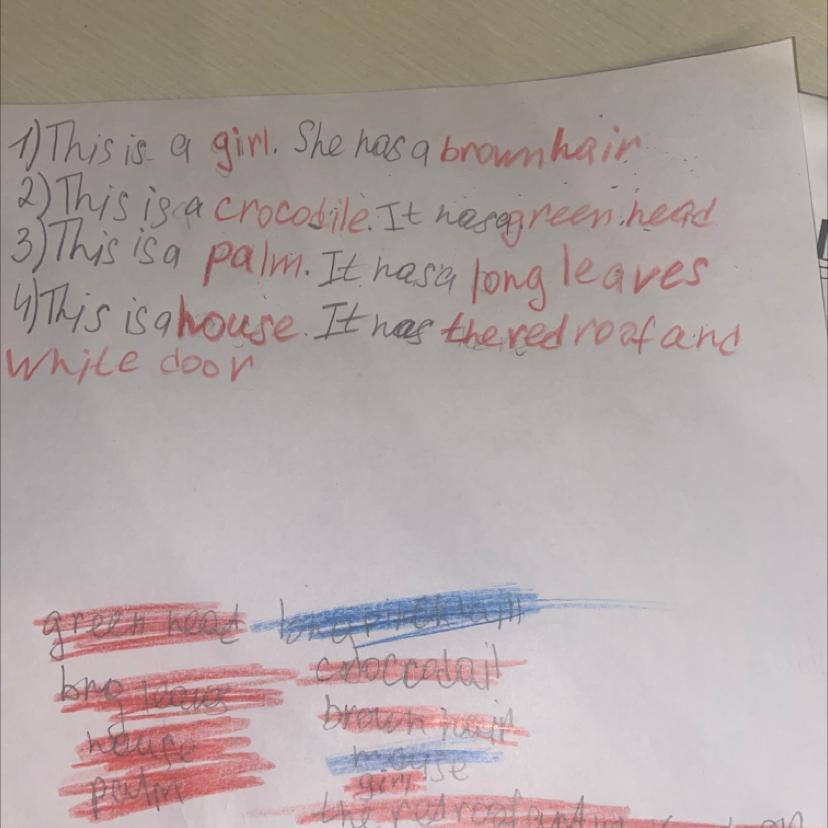 1) This is a girl. She has a brown hair
2) This is a crocodile. It has a green head
3) This is a palm. It has a long leaves
4) This is a house. It has the red roof and
white door
green head
crocodail
leaves
brown hair
house
mouse
palm
girl
the red roof and